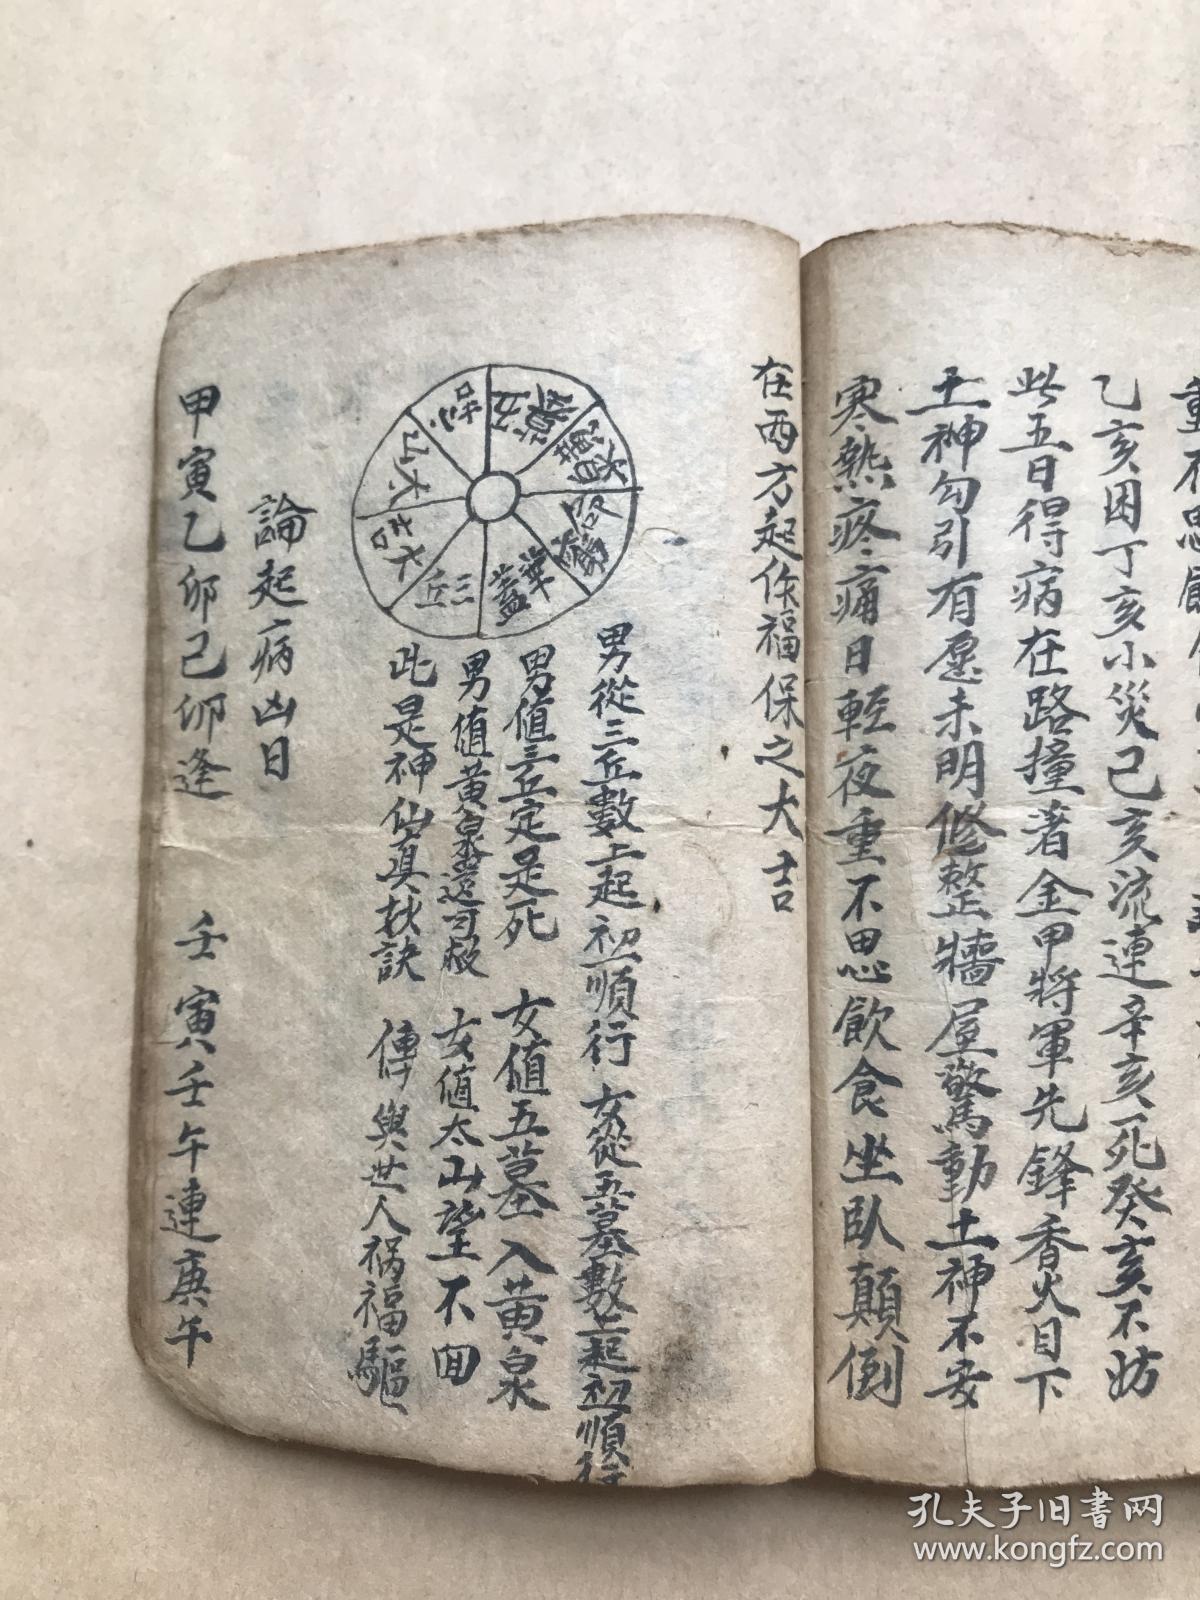 重不思
乙亥困丁亥小災己亥流連辛亥死癸亥不妨
此五日得病在路撞著金甲將軍先鋒香火目下
土神勾引有愿未明修整牆屋驚動土神不安
寒熱疼痛日輕夜重不思飲食坐臥顛倒
在西方起作福保之大吉
男從三丘數上起初順行 女從五墓數上起初順行
男值三丘定是死 女值五墓入黃泉
男值黃泉還可救 女值太山望不回
此是神仙真秘訣 傳與世人祸福驅
三丘
華蓋
論起病凶日
甲寅乙卯己卯逢 壬寅壬午連庚午
孔夫子旧书网
www.kongfz.com